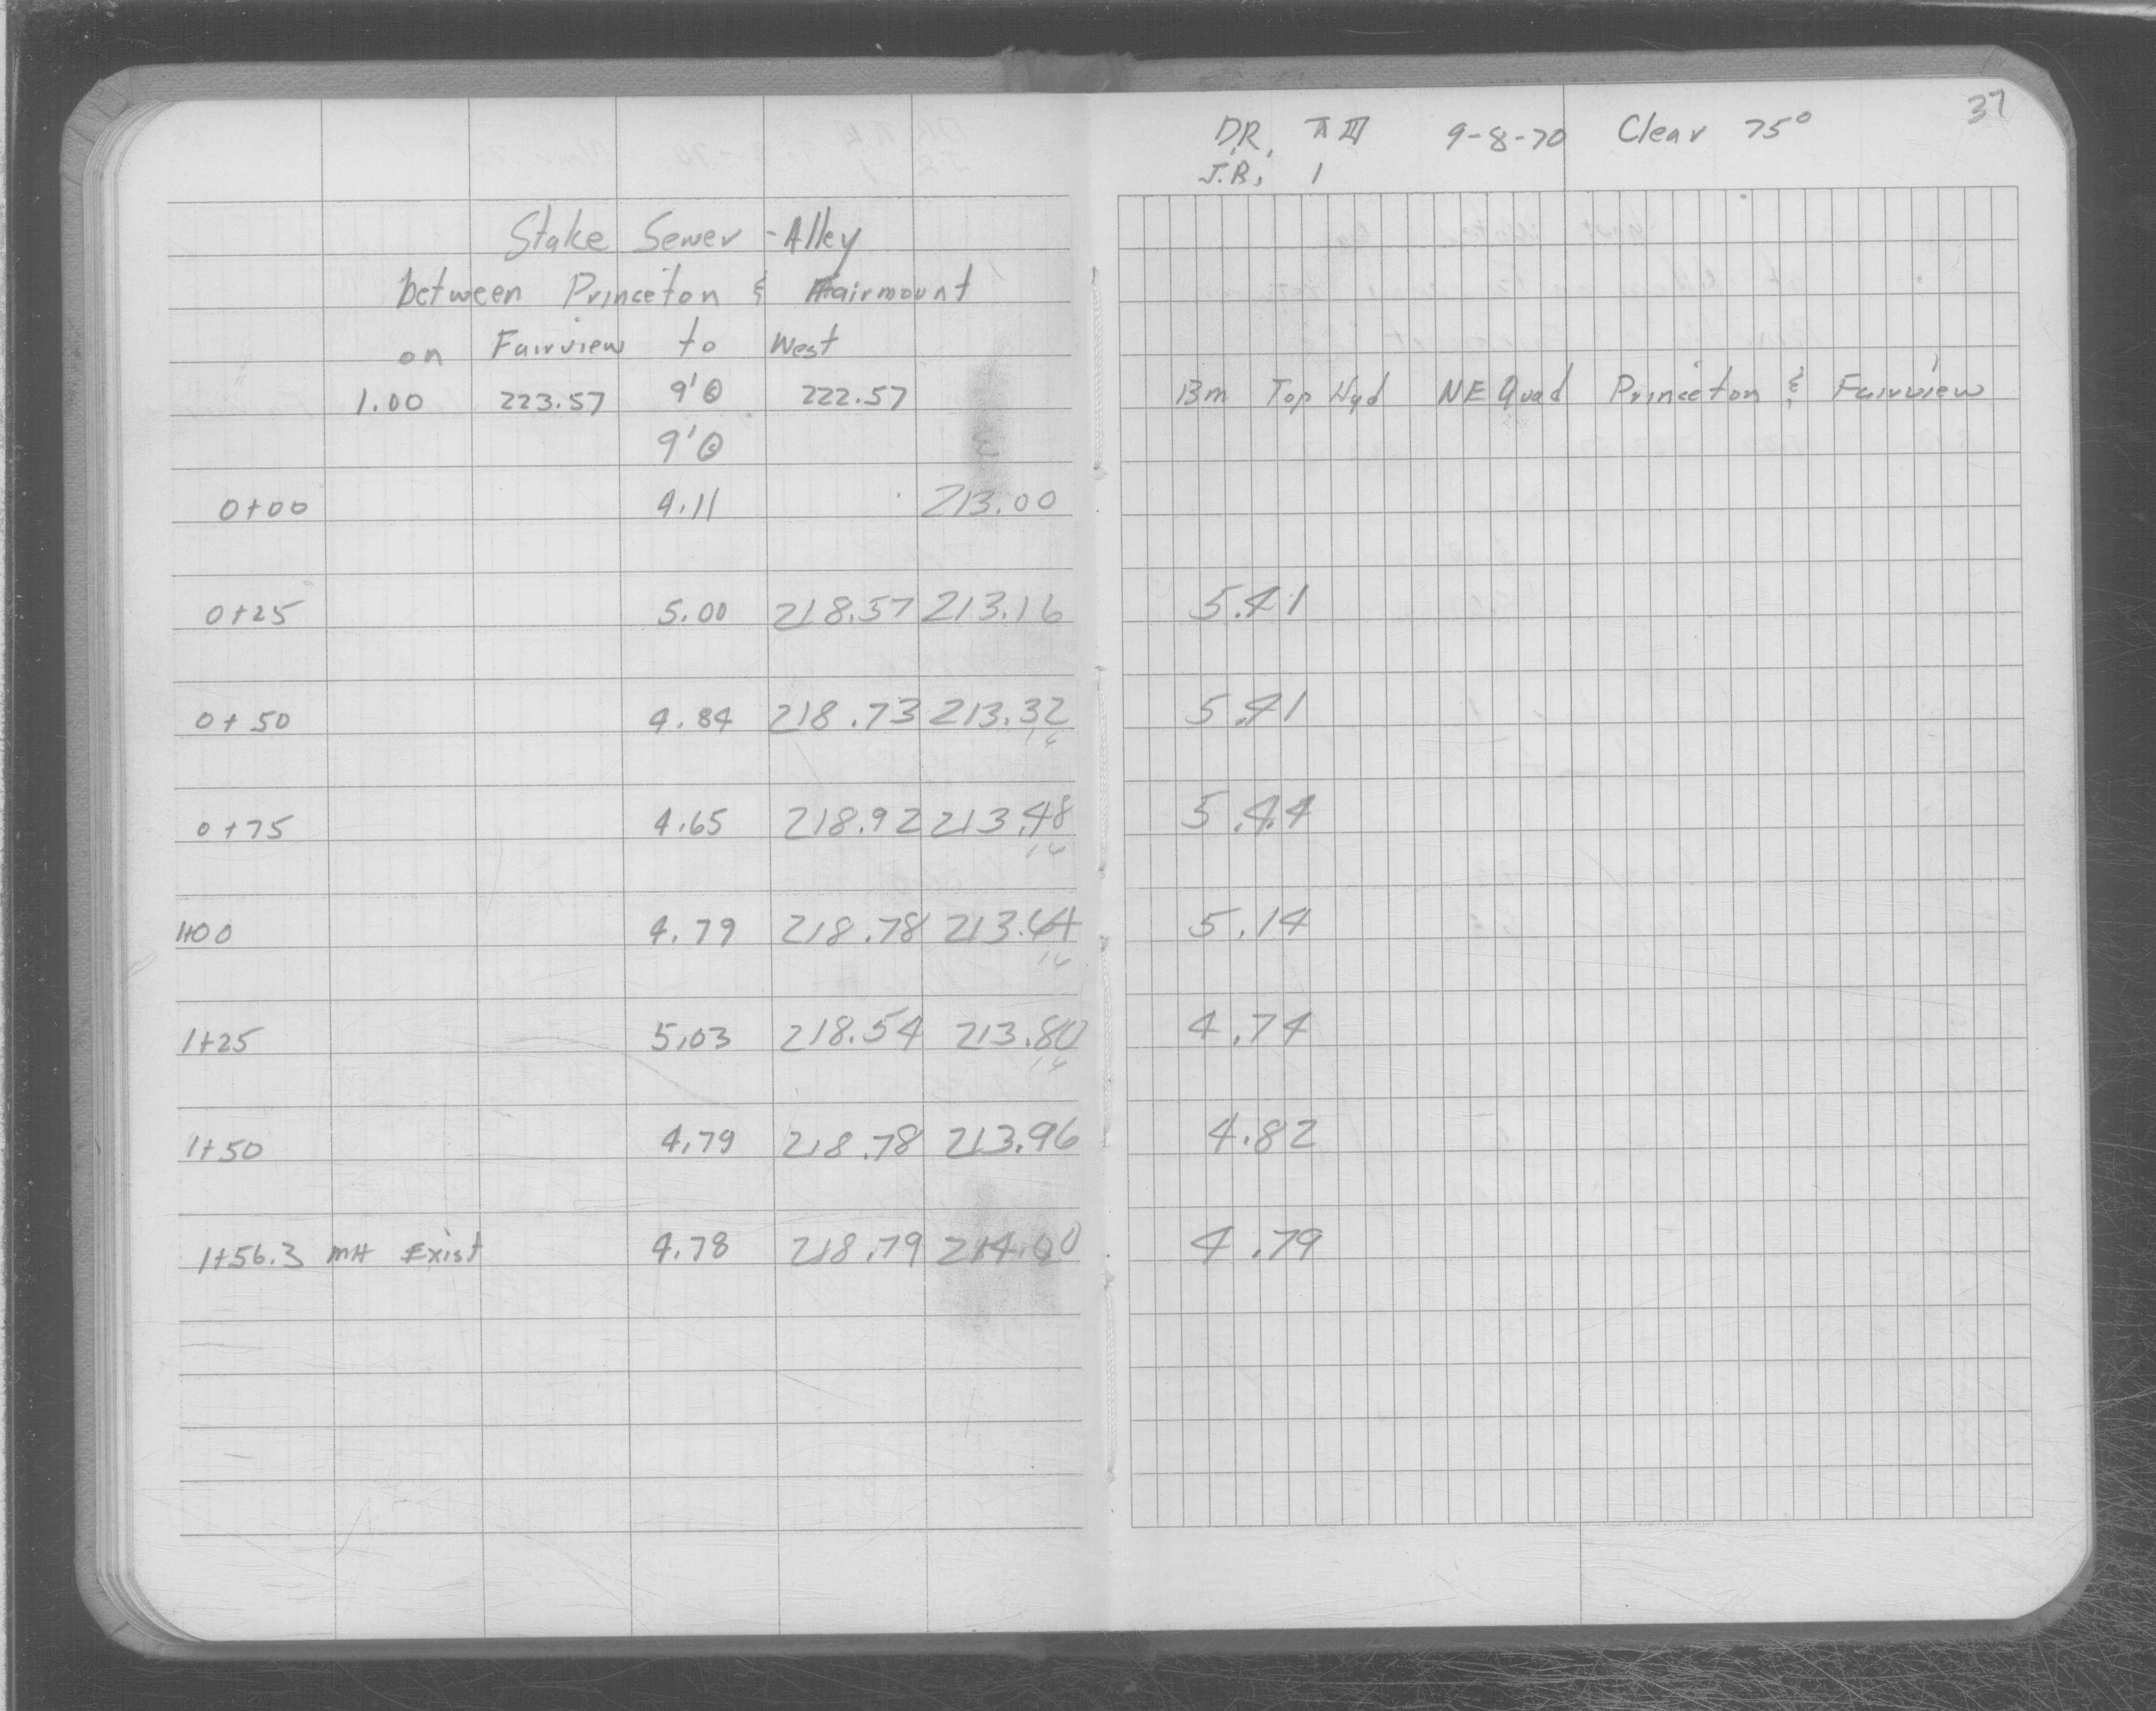 Stake Sewer - Alley
between Princeton & Fairmount
on Fairview to West
1.00 223.57 9' 222.57
9'
0+00 4.11 213.00
0+25 5.00 218.57 213.16
0+50 4.84 218.73 213.32
16
0+75 4.65 218.92 213.48
16
1+00 4.79 218.78 213.64
16
1+25 5.03 218.54 213.80
16
1+50 4.79 218.78 213.96
1+56.3 MH Exist 4.78 218.79 214.00
37
D.R. 9-8-70 Clear 75°
J.R. 1
Bm Top Hyd NE Quad Princeton & Fairview
5.41
5.41
5.44
5.14
4.74
4.82
4.79